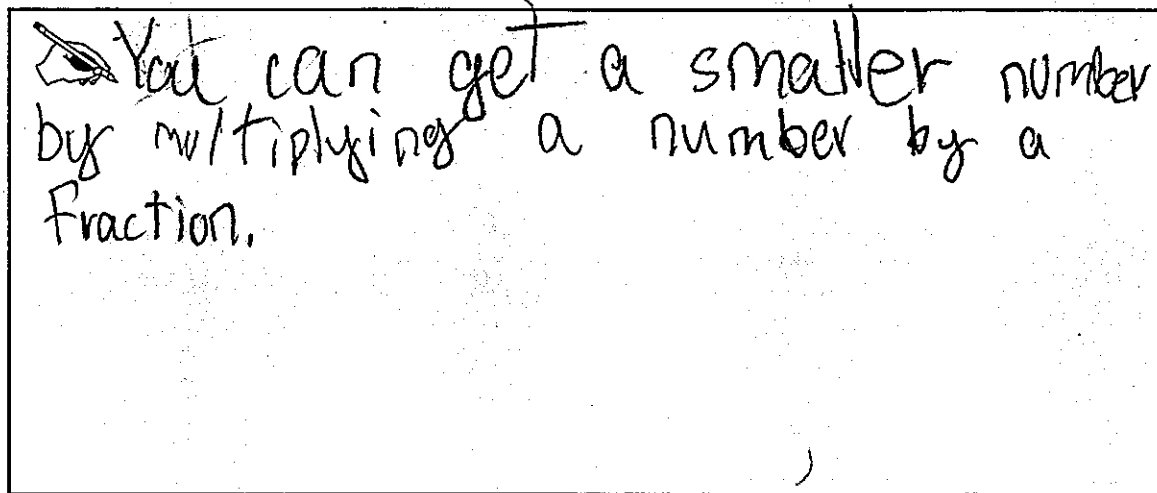 You can get a smaller number
by multiplying a number by a
fraction.